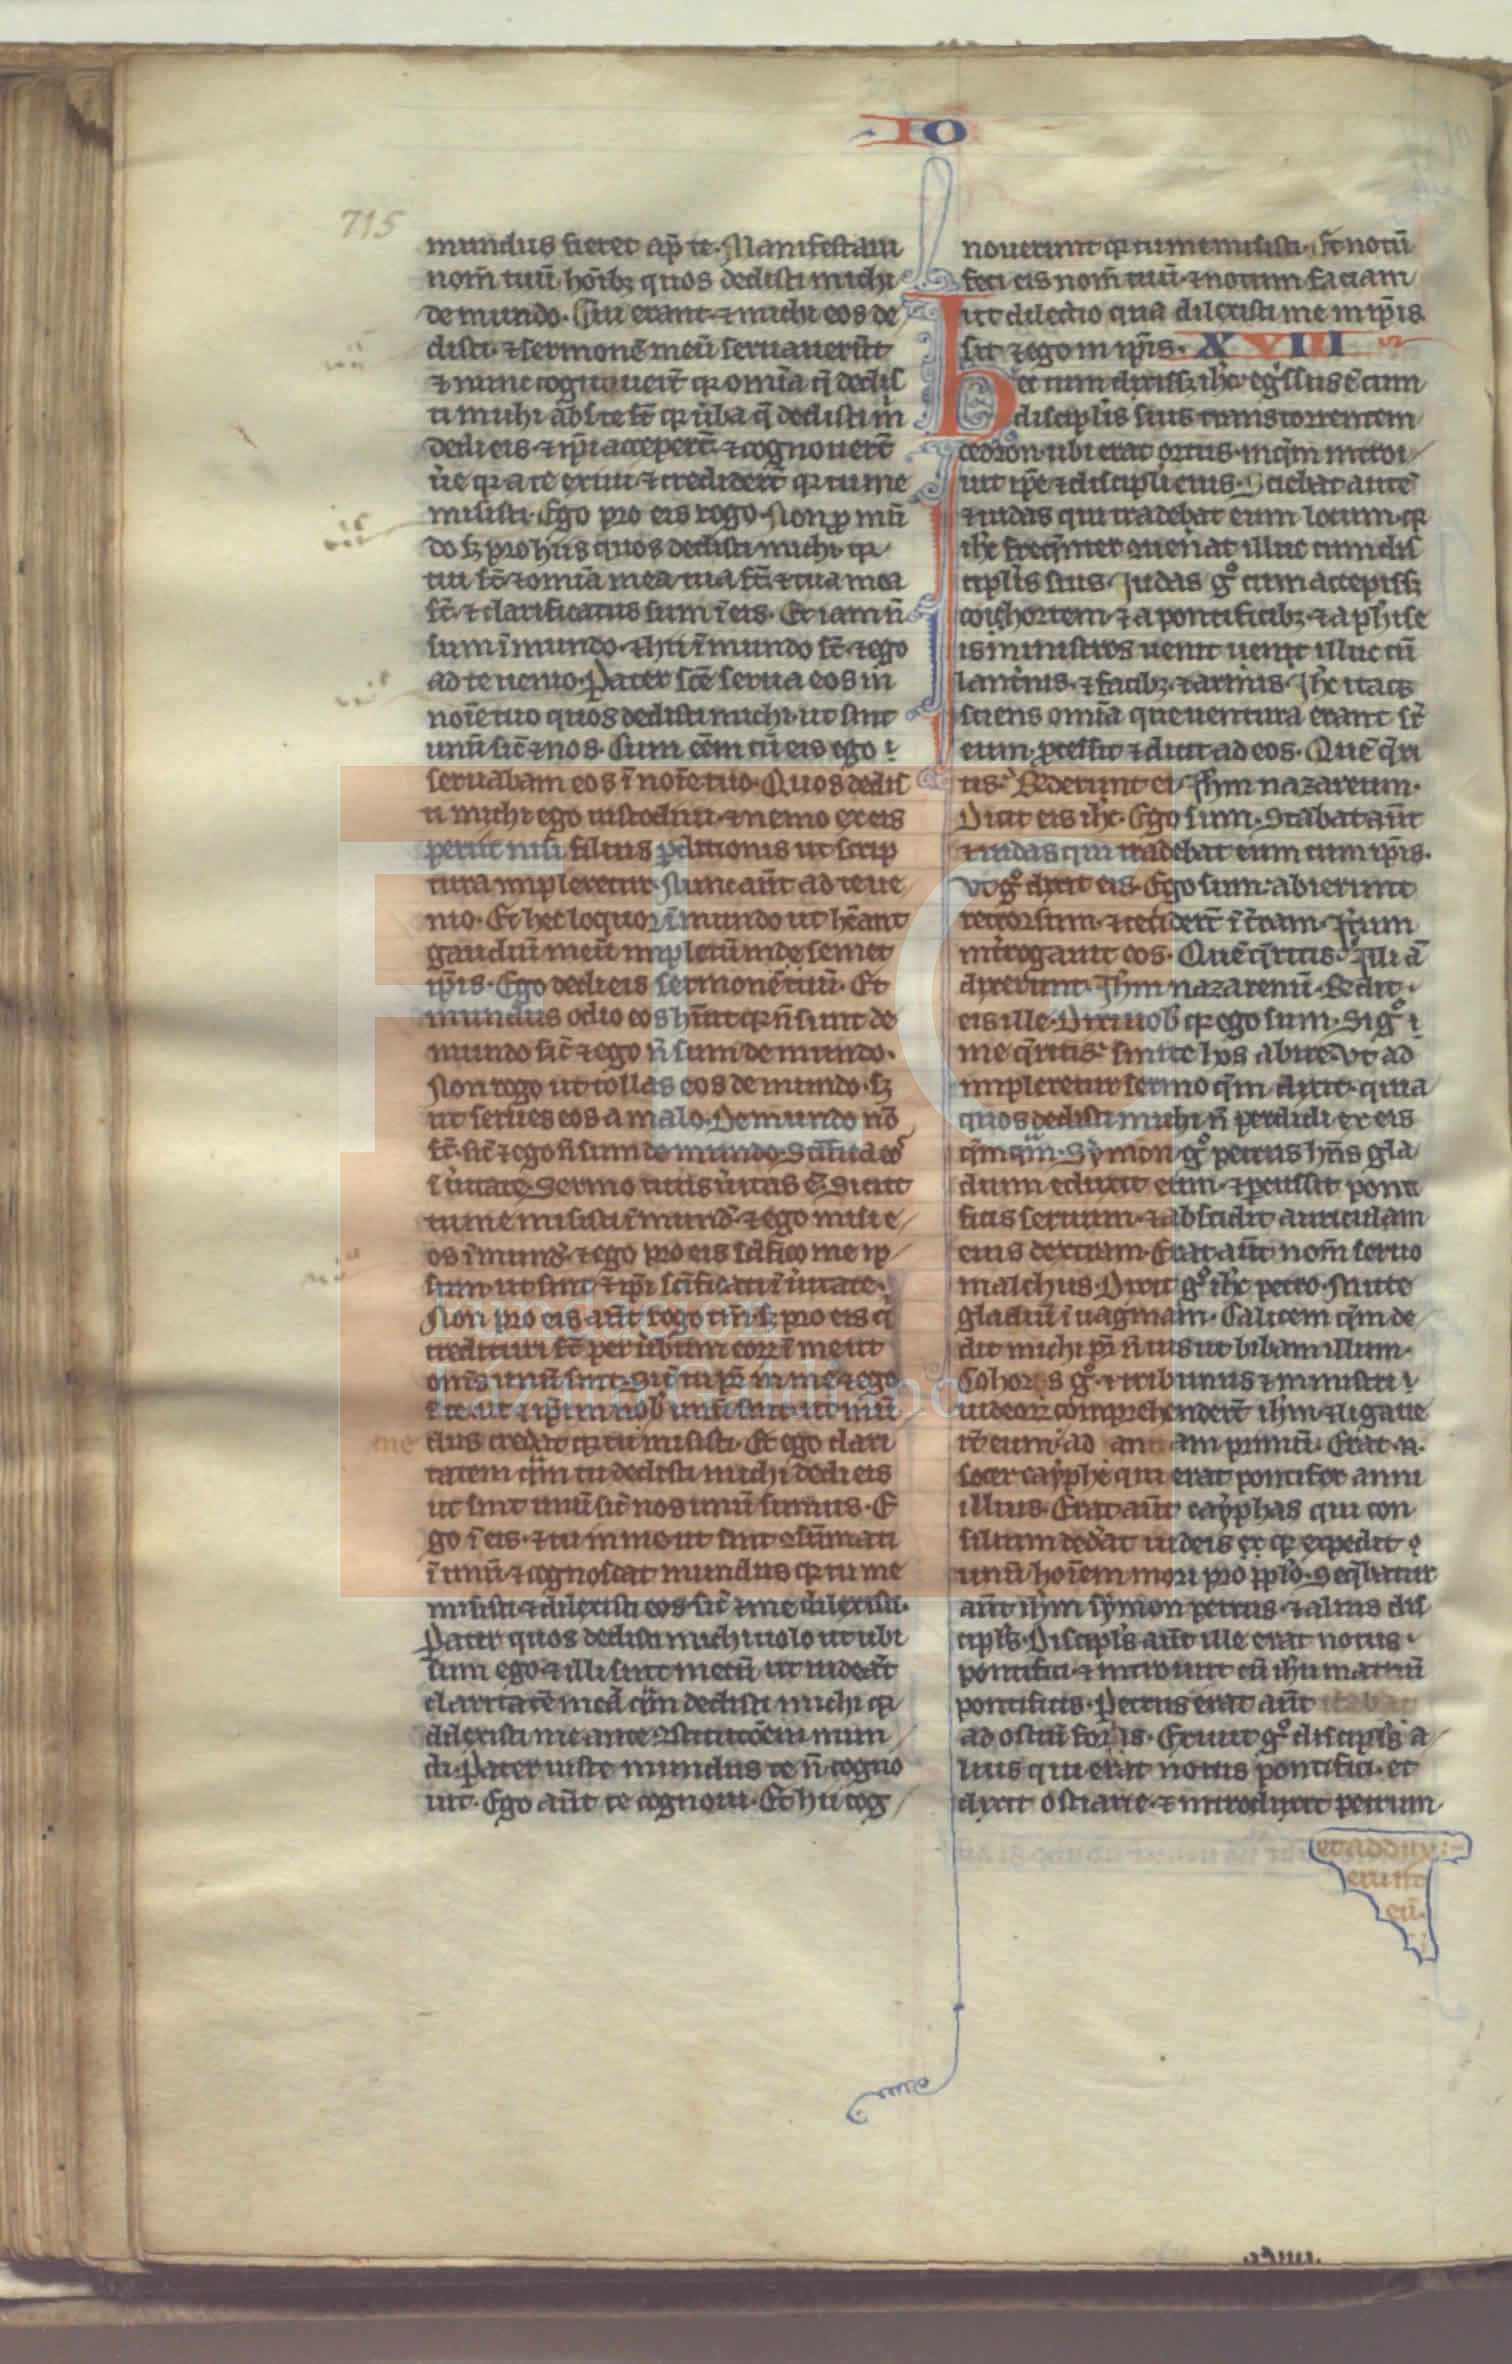 IO
715
mundus fieret ap̄ te. Manifestaui
nom̄ tuū hoīb; quos dedisti michi
de mundo. Tui erant ⁊ michi eos de
disti. ⁊ sermonē meū seruauerūt
⁊ nunc cognouer̄t qr omīa q̄ dedis
ti michi abs te st̄ qr ūba q̄ dedisti m̄
dedi eis. ⁊ ip̄i acceper̄t ⁊ cognouer̄t
ūe qr a te exiui ⁊ credider̄t qr tu me
misisti. Ego pro eis rogo. Non ꝓ mū
do s; pro hiis quos dedisti michi. qr
tui st̄ ⁊ omīa mea tua st̄ ⁊ tua mea
st̄. ⁊ clarificatus sum ī eis. Et iam n̄
sum ī mundo. ⁊ hii ī mundo st̄. ⁊ ego
ad te uenio. Pater sc̄e serua eos in
noīe tuo quos dedisti michi. ut sint
unū sic̄ ⁊ nos. Cum eēm cū eis ego
seruabam eos ī noīe tuo. Quos dedis
ti michi ego custodiui. ⁊ nemo ex eis
periit nisi filius ꝑditionis ut scrip
tura impleretur. Nunc aūt ad te ue
nio. Et hec loquor ī mundo ut hēant
gaudiū meū impletū in de semet
ip̄is. Ego dedi eis sermonē tuū. Et
mundus odio eos hūit qr n̄ sunt de
mundo sic̄ ⁊ ego n̄ sum de mundo.
Non rogo ut tollas eos de mundo. s;
ut serues eos a malo. De mundo nō
st̄. sic̄ ⁊ ego n̄ sum de mundo. Sc̄ifica eo
ī ūitate. Sermo tuus ūitas ē. Sicut
tu me misisti ī mund̄. ⁊ ego misi e
os ī mund̄. ⁊ ego pro eis sc̄ifico me ip
sum ut sint ⁊ ip̄i sc̄ificati ī ūitate.
Non pro eis aūt rogo tm̄. s; pro eis q̄
credituri st̄ per ūbum eorꝝ ī me ut
oēs unū sint. Sic̄ tu pr̄ in me ⁊ ego
ī te. ut ⁊ ip̄i in nob̄ unū sint. ut mū
me
dus credat qr tu misisti. Et ego clari
tatem qm̄ tu dedisti michi dedi eis
ut sint unū sic̄ nos unū sumus. E
go ī eis. ⁊ tu in me ut sint ꝯsūmati
ī unū. ⁊ cognoscat mundus qr tu me
misisti. ⁊ dilexisti eos sic̄ ⁊ me dilexisti.
Pater quos dedisti michi uolo ut ubi
sum ego ⁊ illi sint mecū ut uideāt
claritatē meā qm̄ dedisti michi qr
dilexisti me ante ꝯstitutōem mun
di. Pater iuste mundus te n̄ cogno
uit. Ego aūt te cognoui. Et hii cog
nouerunt qr tu me misisti. Et notū
feci eis nom̄ tuū. ⁊ notum faciam
ut dilectio qua dilexisti me in ip̄is
sit ⁊ ego in ip̄is. XVIII
Hec cum dixiss; ih̄c egr̄ssus ē cum
discipl̄is suis trans torrentem
cedron. ubi erat ortus. in qm̄ introi
uit ip̄e ⁊ discipuli eius. Sciebat autē
⁊ iudas qui tradebat eum locum. qr
ih̄c freqn̄ter ꝯuenāt illuc cum dis
cipl̄is suis. Judas g̊ cum accepiss;
cohortem. ⁊ a pontificib; ⁊ a pharise
is ministros uenit uenit illuc cū
lant̄nis ⁊ facib; ⁊ armis. Ih̄c itaq;
sciens omīa que uentura erant sr̄
eum. ꝓcessit ⁊ dixit ad eos. Quē q̄ri
tis. R̄nderunt ei. Ih̄m nazarenum.
Dicit eis ih̄c. Ego sum. Stabat aūt
⁊ iudas qui tradebat eum cum ip̄is.
Vt g̊ dixit eis. Ego sum: abierunt
retrorsum. ⁊ cecider̄t ī t̄ram. Itum
int̄rogauit eos. Quē q̄ritis. Illi ā
dixerunt. Ih̄m nazarenū. R̄ndit
eis ille. Dixi uob̄ qr ego sum. Si g̊
me q̄ritis: sinite hos abire. Vt ad
impleretur sermo qm̄ dixit. quia
quos dedisti michi n̄ perdidi ex eis
qm̄qm̄. Symon g̊ petrus hn̄s gla
dium eduxit eum. ⁊ ꝑcussit ponti
ficis seruum. ⁊ abscidit auriculam
eius dextram. Erat aūt nom̄ seruo
malchus. Dixit g̊ ih̄c petro. Mitte
gladiū ī uaginam. Calicem qm̄ de
dit michi pr̄ n̄ uis ut bibam illum.
Cohors g̊ ⁊ tribunus ⁊ ministri
iudeorꝝ comprehender̄t ih̄m ⁊ ligaue
rt̄ eum ad annam primū. Erat .n.
socer cayphe qui erat pontifex anni
illius. Erat aūt cayphas qui con
silium ded̄at iudeis qr expedit
unū hoīem mori pro pp̄lo. Seq̄batur
aūt ih̄m symon petrus. ⁊ alius dis
cipl̄s. Discipl̄s aūt ille erat notus
pontifici. ⁊ introiuit cū ih̄u in atriū
pontificis. Petrus erat aūt stabat
ad ostiū foris. Exiuit g̊ discipl̄s a
lius qui erat notus pontifici. et
dixit ostiarie. ⁊ introduxit petrum
et addux
erunt
eū.